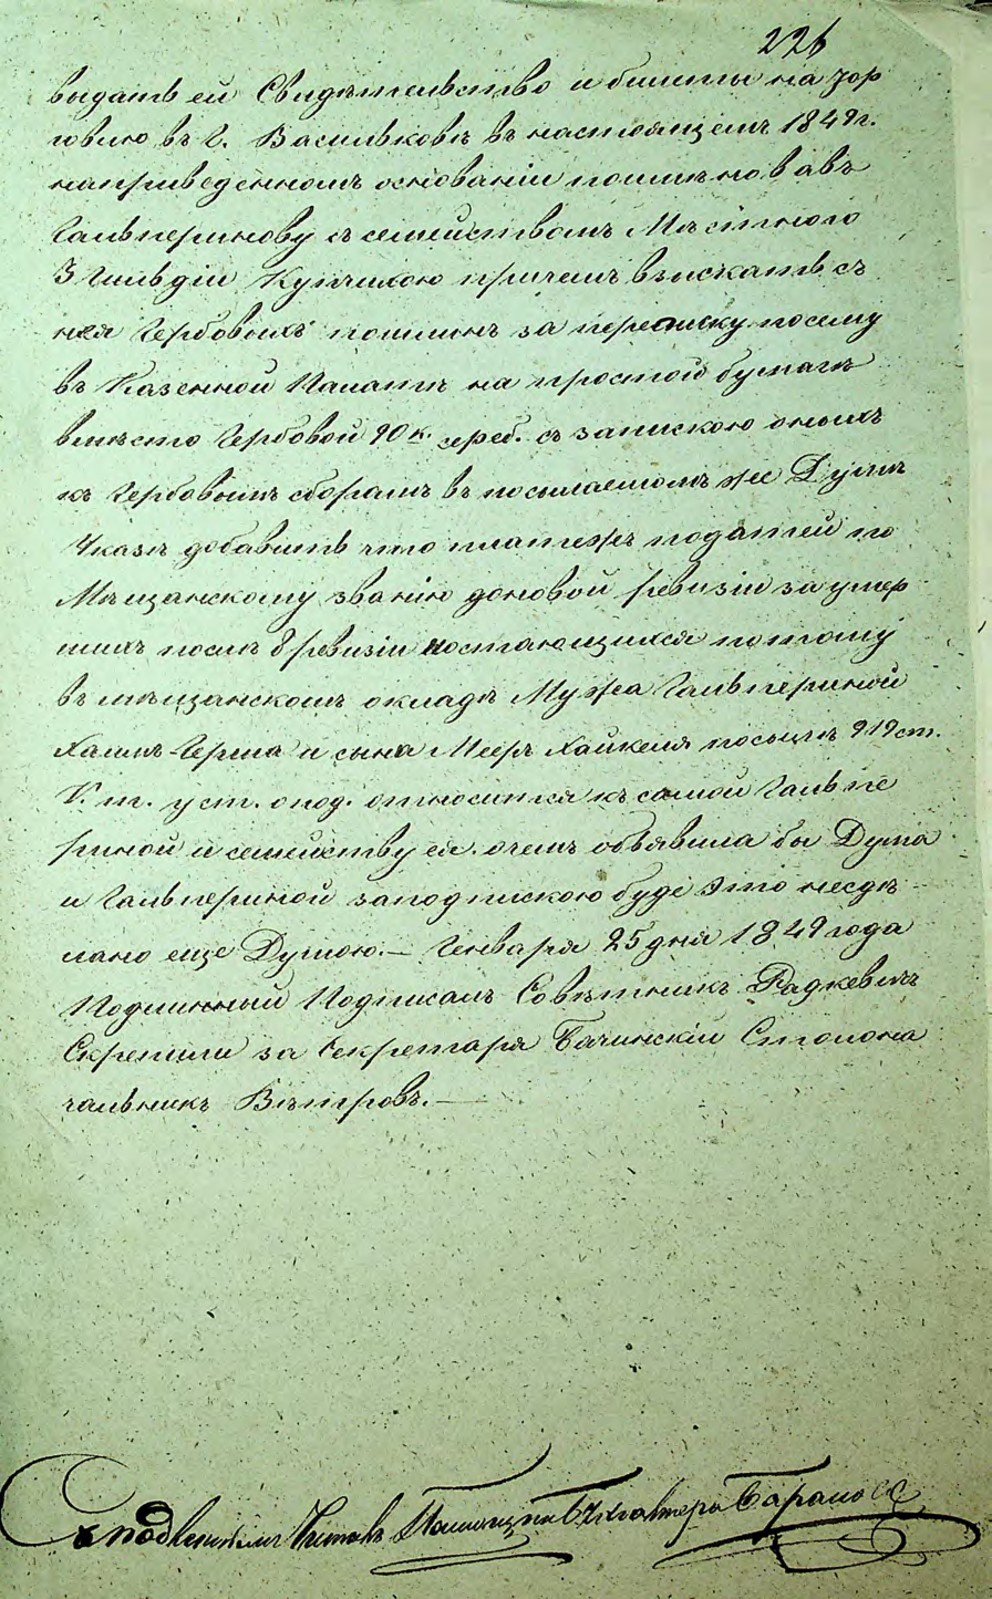 226
выдать ей Свидѣтельство и билеты на тор
говлю въ г. Васильковѣ въ настоящемъ 1849 г.
на приведенномъ основаніи поименовавъ
Гальперинову съ семействомъ Мѣстною
3 Гильдіи Купчихою причемъ взыскать съ
нея Гербовыхъ пошлинъ за переписку посему
въ Казенной Палатѣ на простой бумагѣ
вмѣсто Гербовой 90 к. сереб. съ запискою оныхъ
къ Гербовымъ сборамъ въ посылаемомъ же Думѣ
Указѣ добавить что платежъ податей по
Мѣщанскому званію доновой ревизіи за умер
шихъ послѣ 8 ревизіи и остающихся потому
въ мѣщанскомъ окладѣ Мужа Гальпериной
Хаимъ-Герша и сына Мееръ Хайкеля посылѣ 919 ст.
V. т. уст. о под. относится къ самой Гальпе
риной и семейству ея. о чемъ объявила бы Дума
и Гальпериной заподпискою буде это несдѣ
лано еще Думою. — Генваря 25 дня 1849 года
Подлинный Подписалъ Совѣтникъ Радкевичъ
Скрепили за Секретаря Бачинскій Столона
чальникъ Вѣтровъ. —
Съ подлиннымъ Читалъ Помощникъ Бухгалтера Барановъ